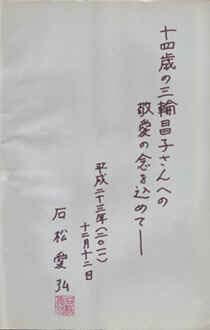 十四歳の三輪昌子さんへの
敬愛の念を込めて――
平成二十三年(二〇一一)
十二月十二日
石松愛弘